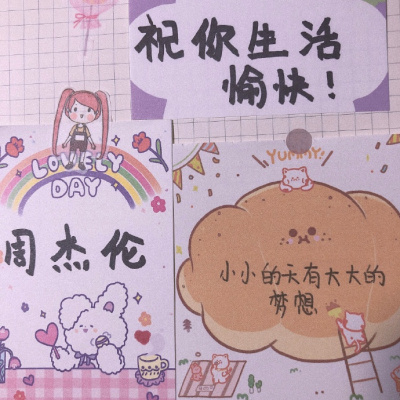 祝你生活
愉快！
LOVELY
DAY
周杰伦
YUMMY!
小小的天有大大的
梦想